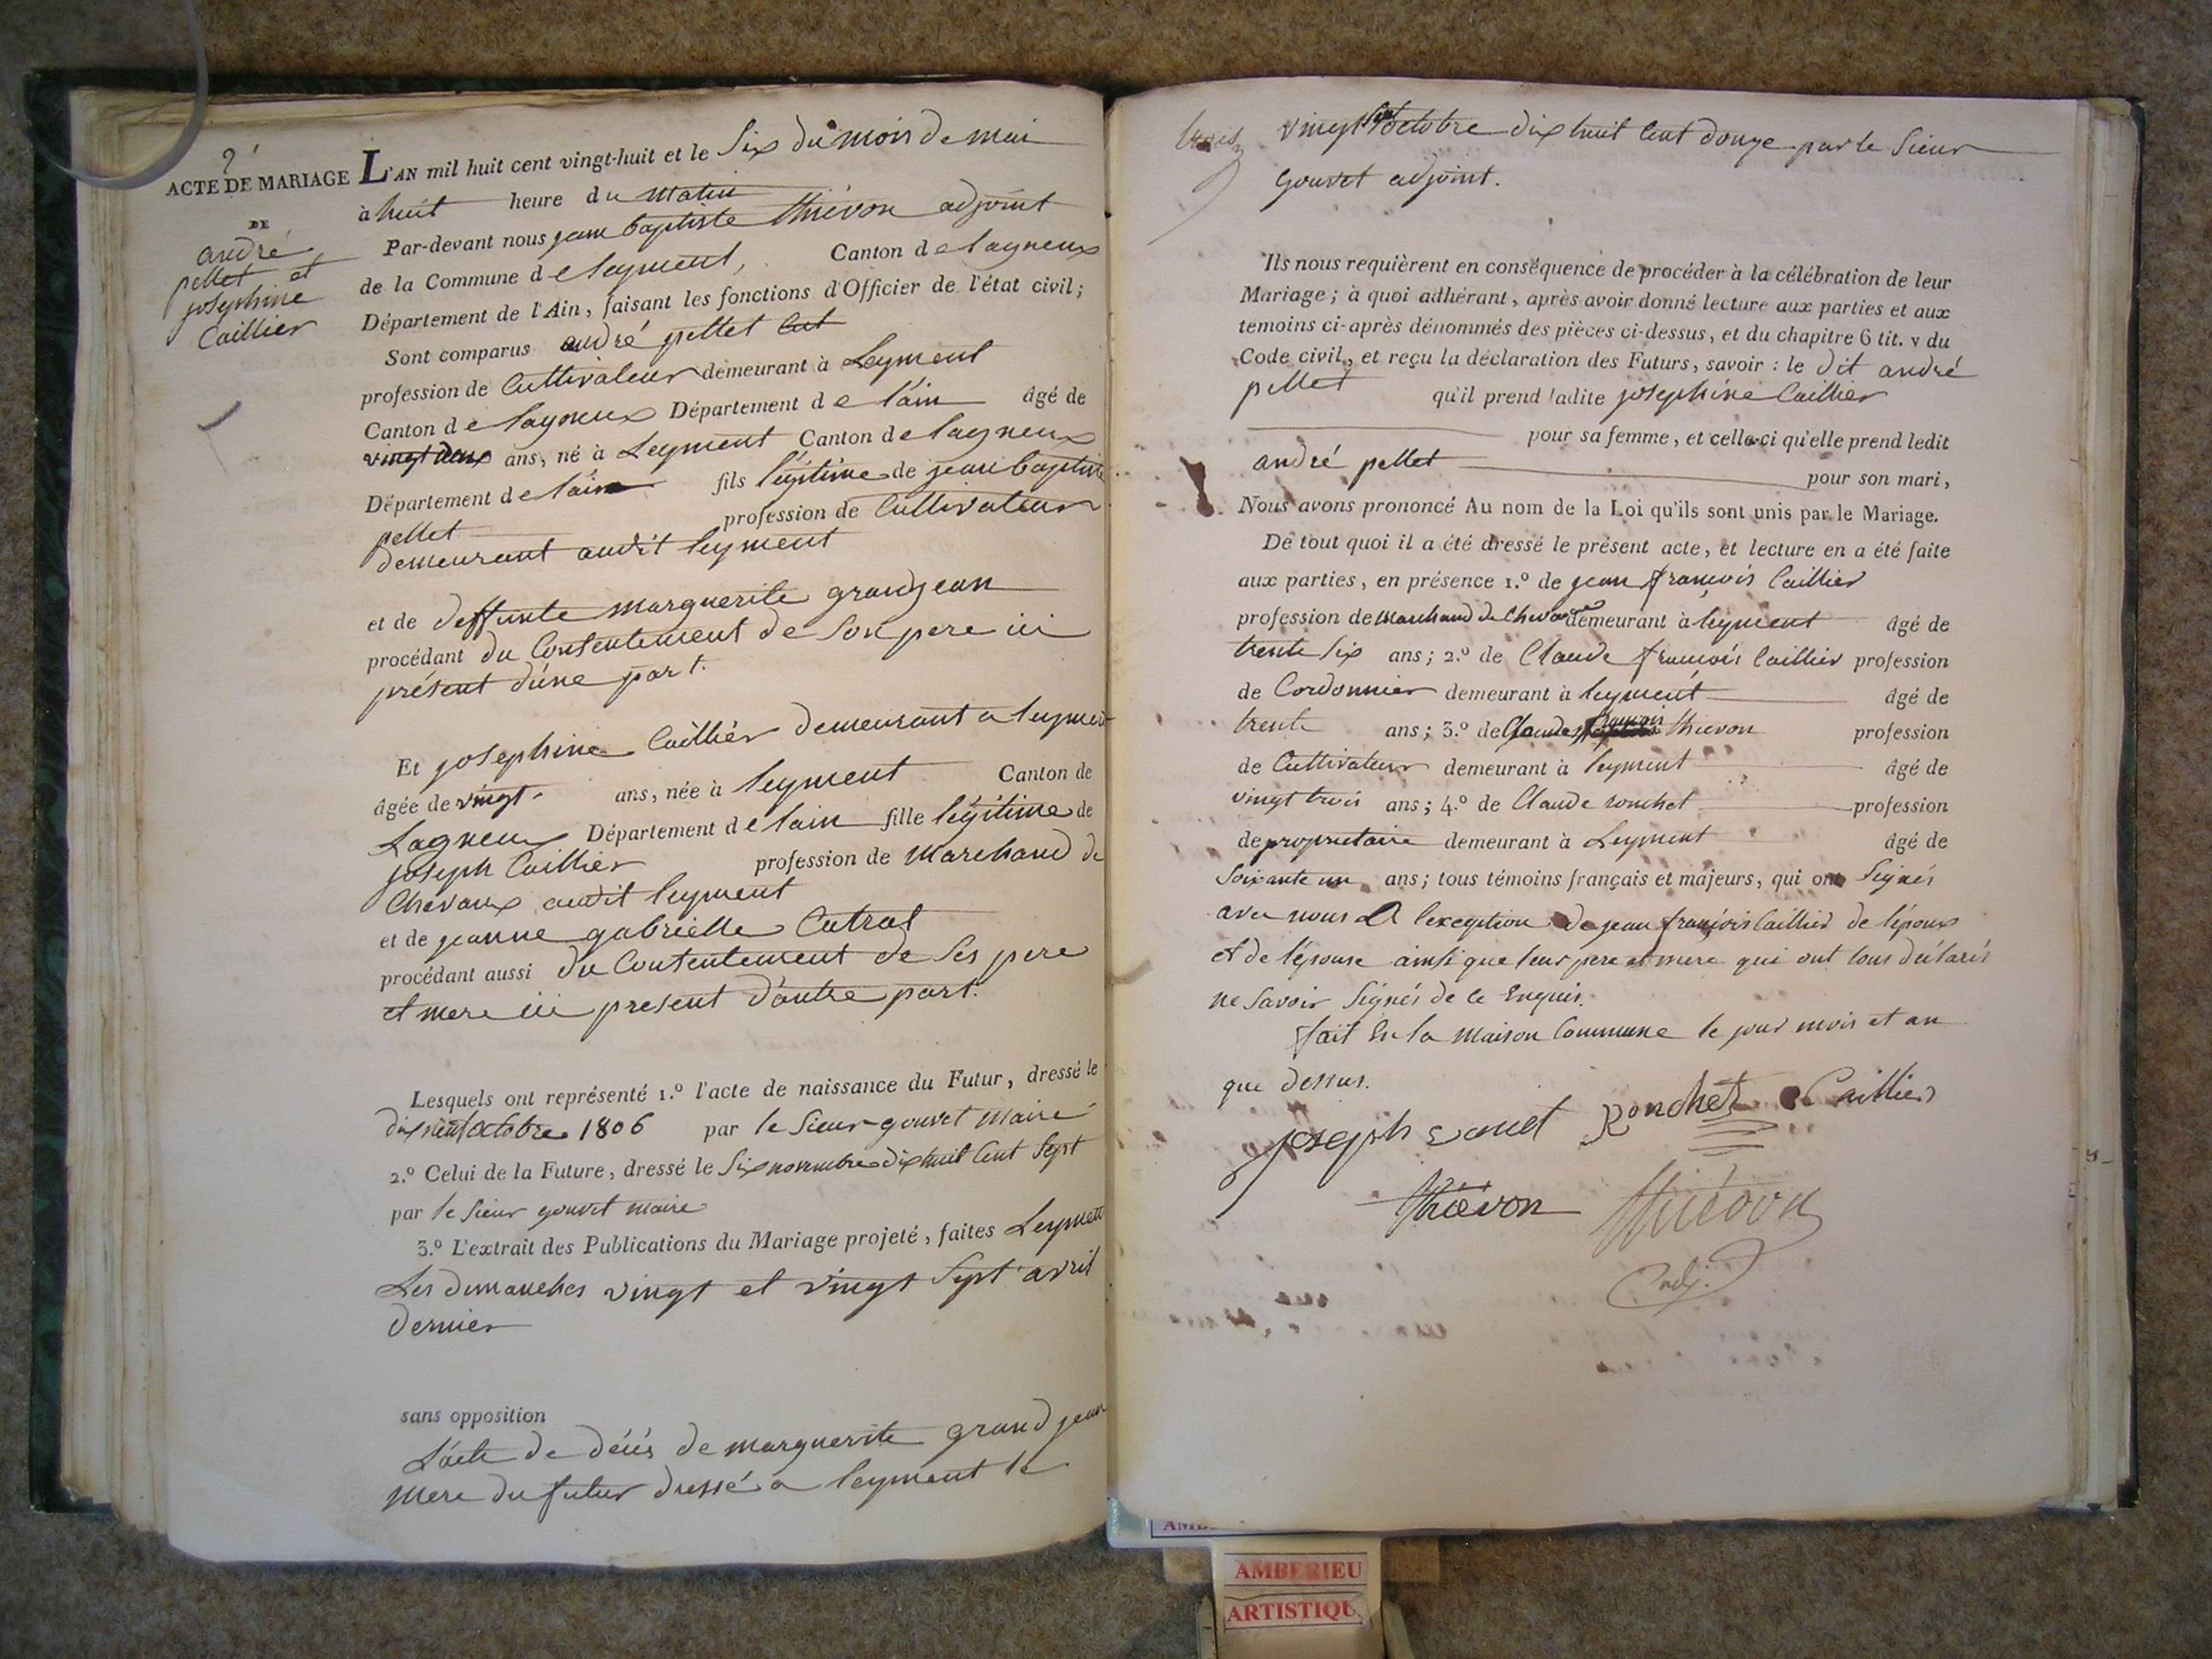 9.e
ACTE DE MARIAGE
DE
andré
pellet et
josephine
Caillier
L'AN mil huit cent vingt-huit et le Six du mois de mai
à huit heure du matin
Par-devant nous jean baptiste thiévon adjoint
de la Commune de leyment, Canton de lagneux
Département de l'Ain, faisant les fonctions d'Officier de l'état civil;
Sont comparus andré pellet
profession de Cultivateur demeurant à Leyment
Canton de lagneux Département de l'ain âgé de
vingt deux ans, né à Leyment Canton de lagneux
Département de l'ain fils légitime de jean baptiste
pellet profession de Cultivateur
demeurant audit leyment
et de deffunte marguerite grandjean
procédant du Consentement de Son pere ici
présent d'une part.
Et josephine Caillier demeurant a leyment
âgée de vingt ans, née à leyment Canton de
Lagneux Département de l'ain fille légitime de
joseph Caillier profession de Marchand de
Chevaux audit leyment
et de jeanne gabrielle Cutrat
procédant aussi du Consentement de Ses pere
et mere ici present d'autre part.
Lesquels ont représenté 1.º l'acte de naissance du Futur, dressé le
dix neuf octobre 1806 par le Sieur gouvet maire
2.º Celui de la Future, dressé le Six novembre dix huit Cent Sept
par le Sieur gouvet maire
3.º L'extrait des Publications du Mariage projeté, faites Leyment
Les dimanches vingt et vingt Sept avril
dernier
sans opposition
L'acte de décés de marguerite grand jean
mere du futur dressé a leyment le
vingt Sept octobre dix huit Cent douze par le Sieur
gouvet adjoint.
Ils nous requièrent en conséquence de procéder à la célébration de leur
Mariage; à quoi adhérant, après avoir donné lecture aux parties et aux
temoins ci-après dénommés des pièces ci-dessus, et du chapitre 6 tit. v du
Code civil, et reçu la déclaration des Futurs, savoir : le dit andré
pellet qu'il prend ladite josephine Caillier
pour sa femme, et celle-ci qu'elle prend ledit
andré pellet pour son mari,
Nous avons prononcé Au nom de la Loi qu'ils sont unis par le Mariage.
De tout quoi il a été dressé le présent acte, et lecture en a été faite
aux parties, en présence 1.º de jean françois Caillier
profession de Marchand de Chevaux demeurant à leyment âgé de
trente Six ans; 2.º de Claude françois Caillier profession
de Cordonnier demeurant à leyment âgé de
trente ans; 3.º de Claude françois thievon profession
de Cultivateur demeurant à leyment âgé de
vingt trois ans; 4.º de Claude ronchet profession
de proprietaire demeurant à Leyment âgé de
Soixante un ans; tous témoins français et majeurs, qui ont Signés
avec nous A l'exception de jean françois Caillier de l'époux
et de l'épouse ainsi que leur pere et mere qui ont tous déclarés
ne Savoir Signés de Ce Enquis.
fait En la Maison Commune le jour mois et an
que dessus.
joseph Ronchet Caillier
thiévon thiévon
adj.
AMBERIEU
ARTISTIQU